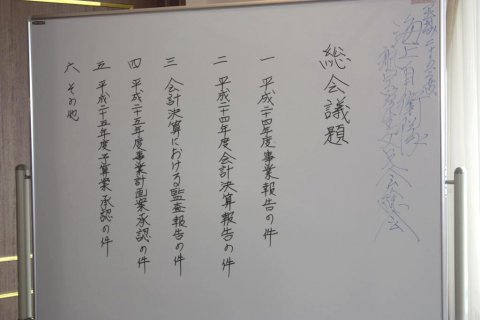 海上自衛隊
総会議題
一 平成二十四年度事業報告の件
二 平成二十四年度会計決算報告の件
三 会計決算における監査報告の件
四 平成二十五年度事業計画案承認の件
五 平成二十五年度予算案承認の件
六 その他